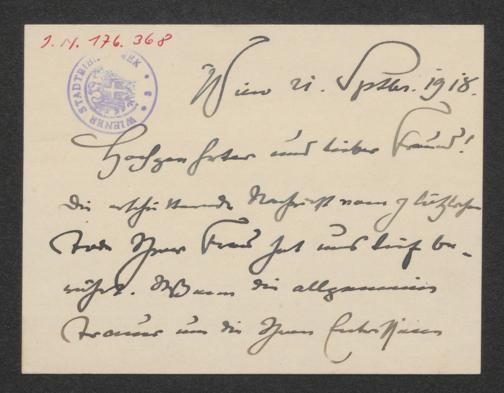 J. N. 176.368
WIENER STADTBIBLIOTHEK
Wien 21. Septbr. 1918.
Hochgeehrter und lieber Freund!
Die erschütternde Nachricht vom plötzlichen
Tode Ihrer Frau hat uns tief be-
rührt. Wenn die allgemeine
Trauer um die Ihnen Entrissene